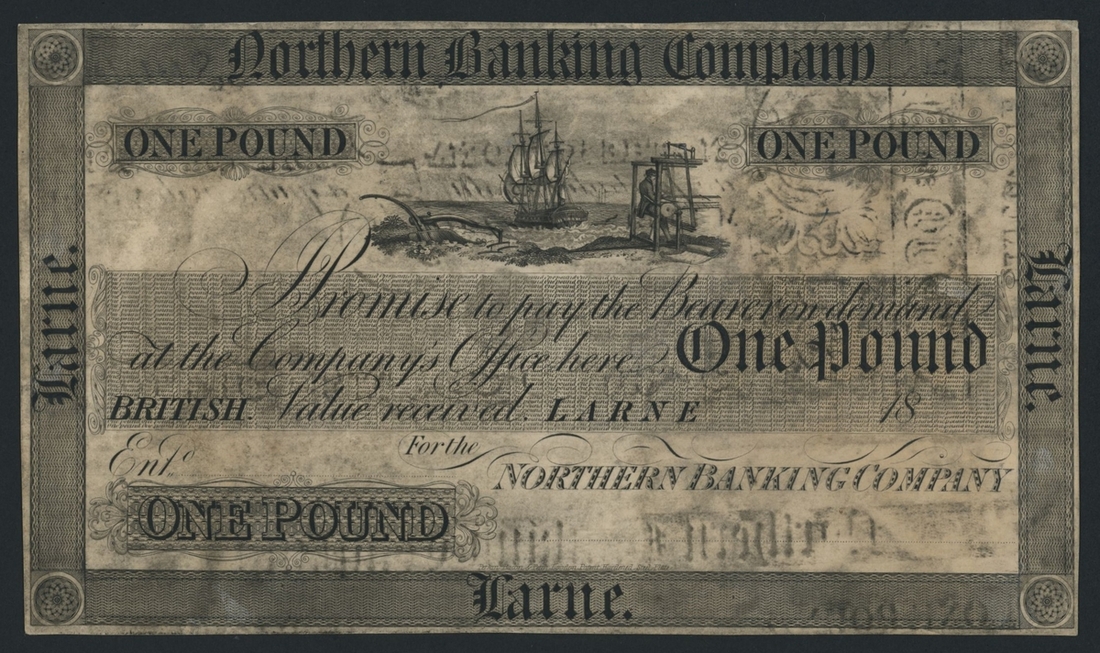 Northern Banking Company
ONE POUND
ONE POUND
Larne.
Larne.
Promise to pay the Bearer on demand
at the Company's Office here One Pound
BRITISH. Value received. LARNE 18
Entd.
For the
NORTHERN BANKING COMPANY
ONE POUND
Larne.